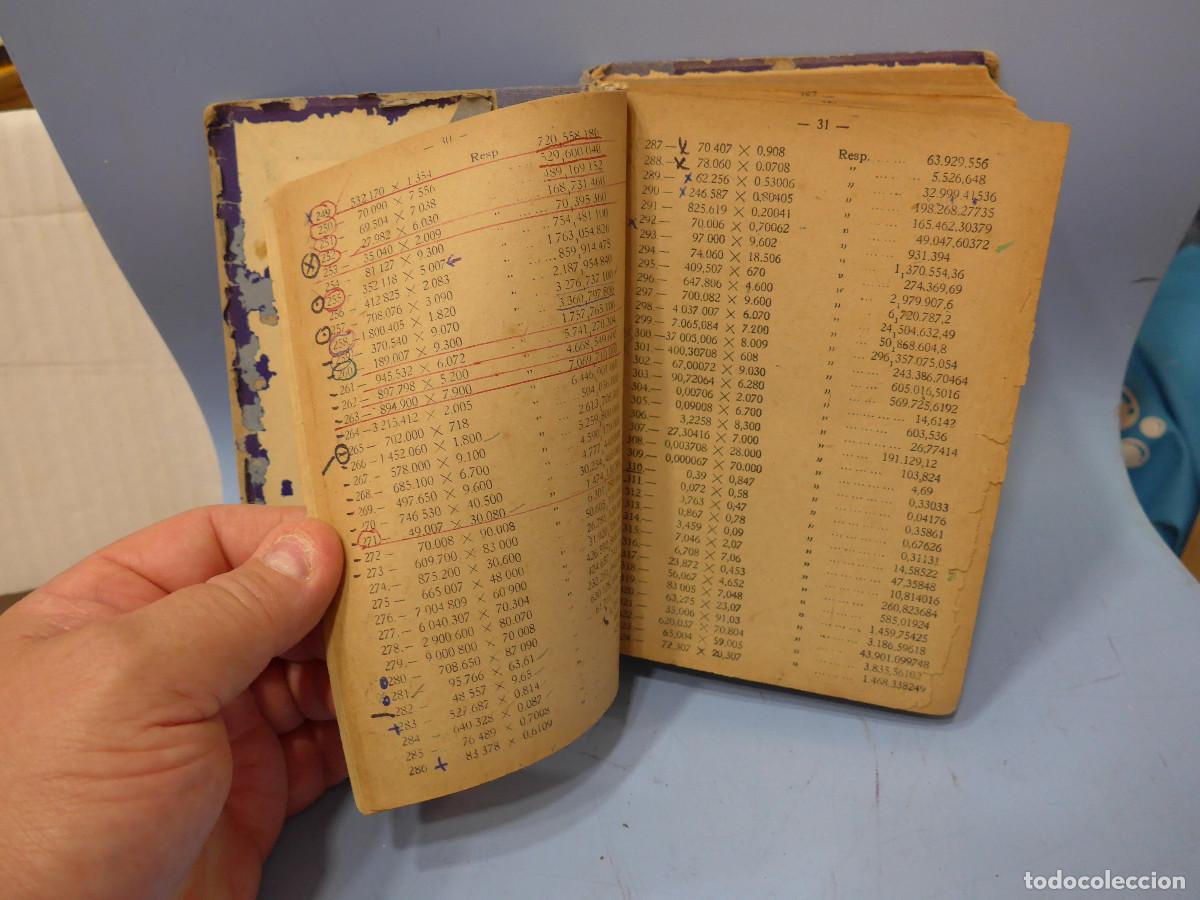 — 30 —
Resp. 720,558.180
249 532.170 × 1.354 529,600.040
250 70.090 × 7.556 489,169.152
251 69.504 × 7.038 168,731.460
252 27.982 × 6.030 70,395.360
253 35.040 × 2.009 754,481.100
254 81.127 × 9.300 1.763,054.826
255 352.118 × 5.007 859,914.475
256 412.825 × 2.083 2.187,954.840
257 708.076 × 3.090 3.276,737.100
258 1.800.405 × 1.820 3.360,797.800
370.540 × 9.070 1.757,765.100
260 189.007 × 9.300 5.741,270.304
261 — 945.532 × 6.072
262 — 897.798 × 5.200
263 — 894.900 × 7.900
264 — 3.215.412 × 2.005
265 — 702.000 × 718
266 — 1.452.060 × 1.800
267 — 578.000 × 9.100
268 — 685.100 × 6.700
269 — 497.650 × 9.600
746.530 × 40.500
271 — 49.007 × 30.080
272 — 70.008 × 90.008
273 — 609.700 × 83.000
274 — 875.200 × 30.600
275 — 665.007 × 48.000
276 — 7.004.809 × 60.900
277 — 6.040.307 × 70.304
278 — 2.900.600 × 80.070
279 — 9.000.800 × 70.008
280 708.650 × 87.090
281 95.766 × 63,61
282 — 48.557 × 9,65
283 — 527.687 × 0,814
284 — 640.328 × 0,087
285 — 76.489 × 0,7008
286 83.378 × 0,6109
— 31 —
287 — 70 407 × 0,908 Resp. 63.929,556
288 — 78.060 × 0.0708 „ 5.526,648
289 — 62.256 × 0.53006 „ 32.999,41536
290 — 246.587 × 0,80405 „ 198.268,27735
291 — 825.619 × 0,20041 „ 165.462,30379
292 — 70.006 × 0,70062 „ 49.047,60372
293 — 97.000 × 9.602 „ 931.394
294 — 74.060 × 18.506 „ 1,370.554,36
295 — 409,507 × 670 „ 274.369,69
296 — 647.806 × 4.600 „ 2,979.907,6
297 — 700.082 × 9.600 „ 6,720.787,2
298 — 4.037 007 × 6.070 „ 24,504.632,49
299 — 7.065,084 × 7.200 „ 50,868.604,8
300 — 37 003,006 × 8.009 „ 296,357.075,054
301 — 400,30708 × 608 „ 243.386,70464
302 — 67,00072 × 9.030 „ 605.016,5016
303 — 90,72064 × 6.280 „ 569.725,6192
304 — 0,00706 × 2.070 „ 14,6142
305 — 0,09008 × 6.700 „ 603,536
306 — 3,2258 × 8,300 „ 26,77414
307 — 27,30416 × 7.000 „ 191.129,12
308 — 0,003708 × 28.000 „ 103,824
309 — 0,000067 × 70.000 „ 4,69
310 — 0,39 × 0,847 „ 0,33033
311 — 0,072 × 0,58 „ 0,04176
312 — 0,763 × 0,47 „ 0,35861
313 — 0,867 × 0,78 „ 0,67626
3,459 × 0,09 „ 0,31131
7,046 × 2,07 „ 14,58522
6,708 × 7,06 „ 47,35848
23,872 × 0,453 „ 10,814016
56,067 × 4,652 „ 260,823684
83,005 × 7,048 „ 585,01924
63,275 × 23,07 „ 1.459,75425
35,006 × 91,03 „ 3.186,59618
620,037 × 70,804 „ 43.901,099748
65,004 × 59,005 „ 3.835,56102
72,307 × 20,307 „ 1.468,338249
todocoleccion